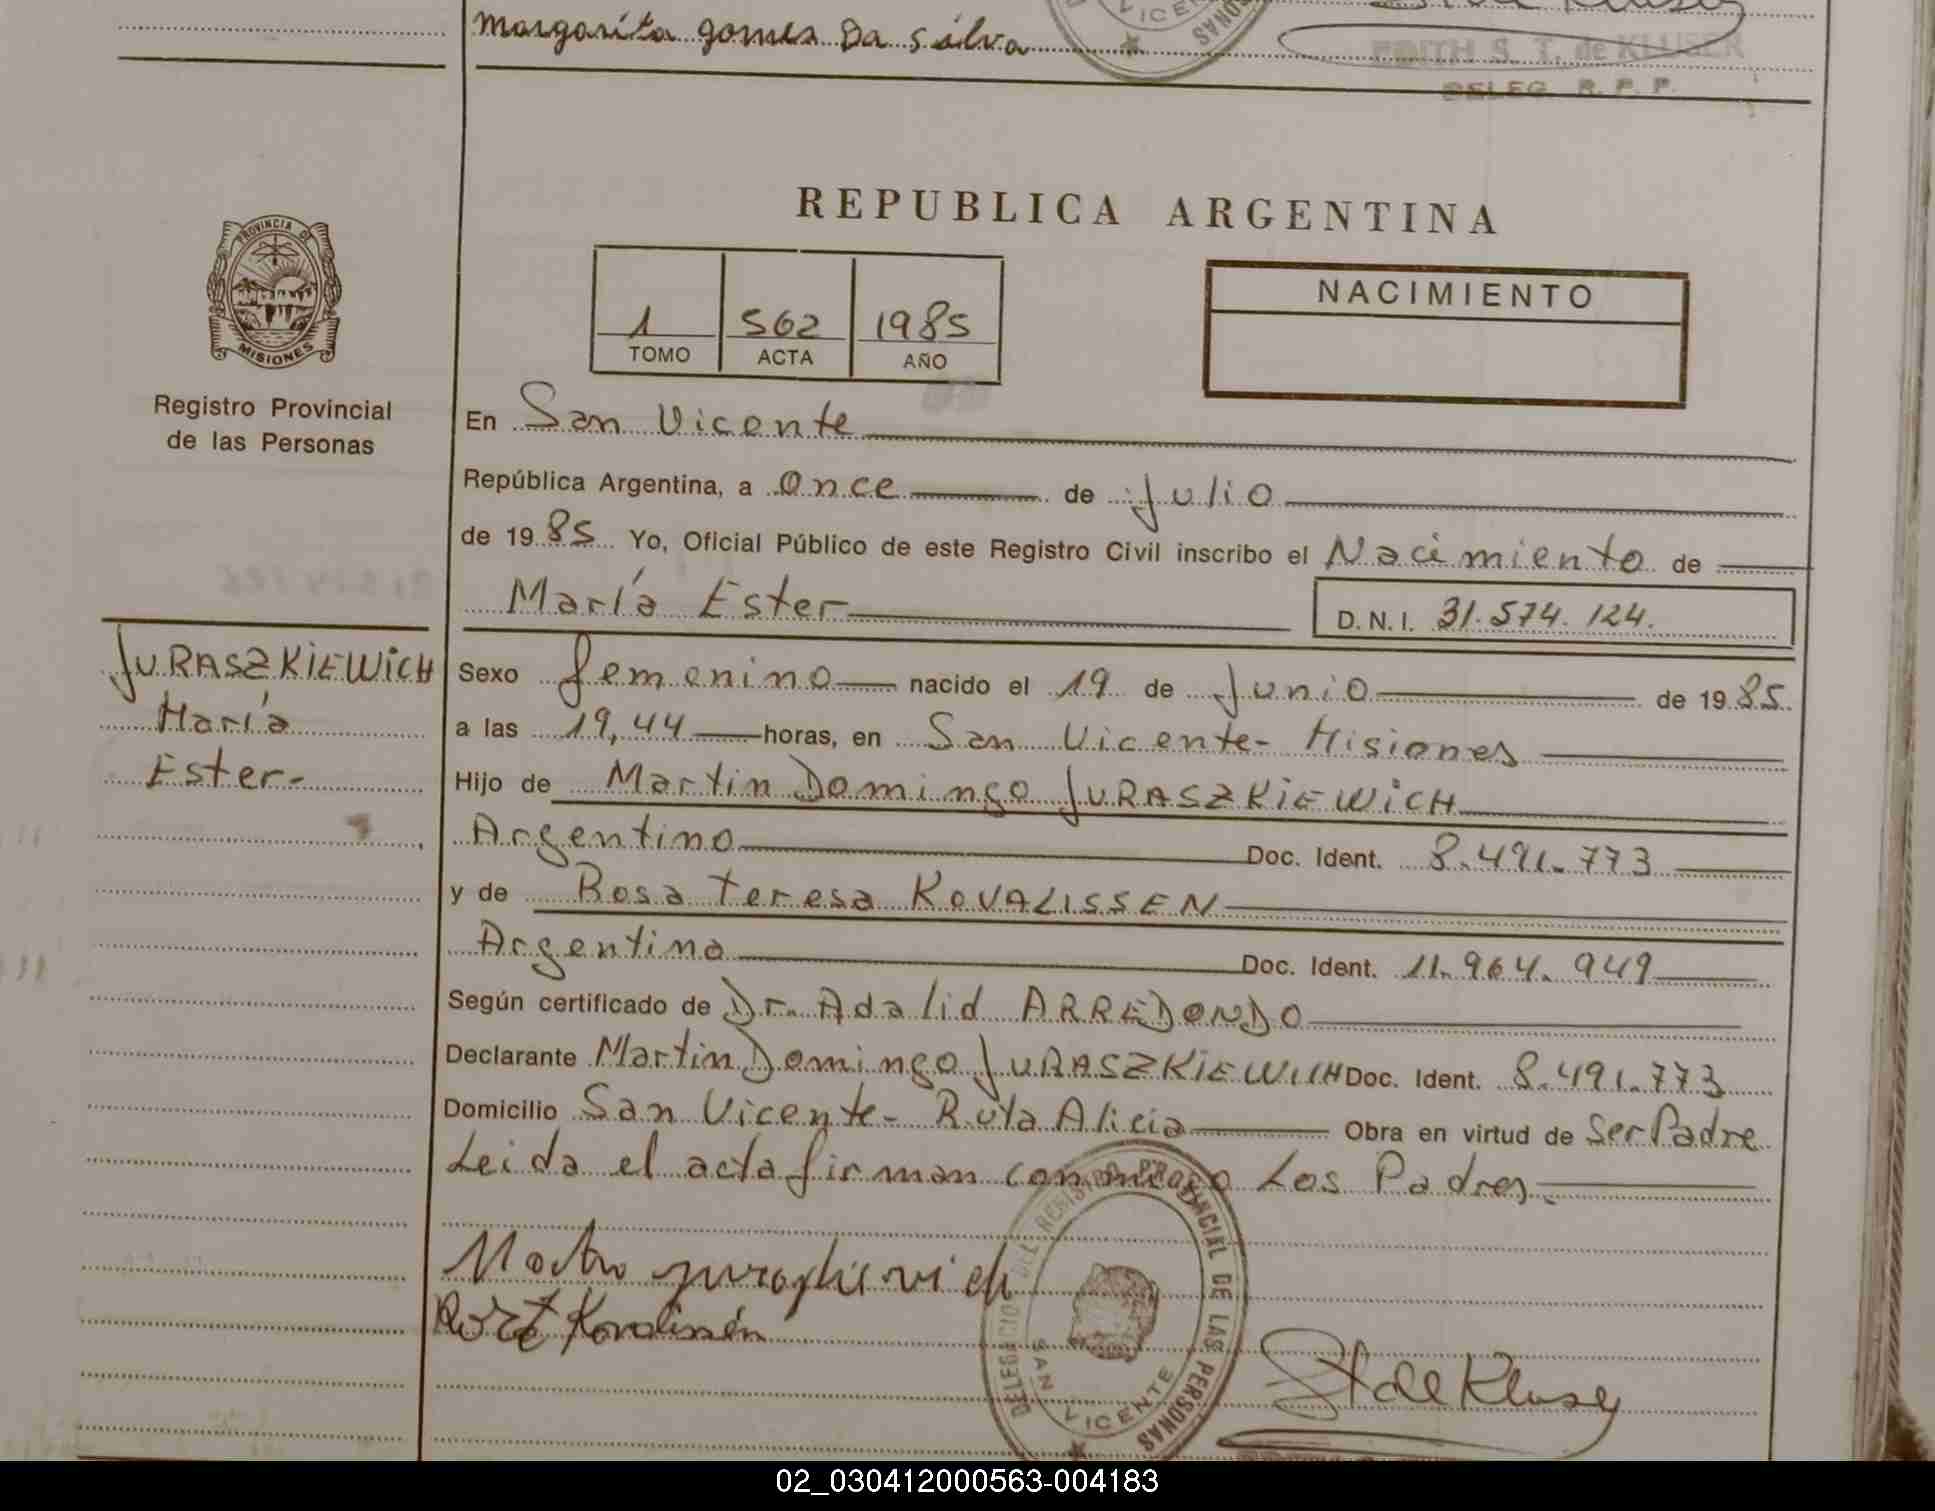 Margarita gomes Da silva
EDITH S. T. de KLUSER
DELEG. R. P. P.
REPUBLICA ARGENTINA
PROVINCIA DE
MISIONES
Registro Provincial
de las Personas
1 562 1985
TOMO ACTA AÑO
NACIMIENTO
En San Vicente
República Argentina, a once de julio
de 1985 Yo, Oficial Público de este Registro Civil inscribo el Nacimiento de
María Ester
D.N.I. 31.574.124.
JURASZKiEWiCH
María
Ester-
Sexo femenino nacido el 19 de Junio de 1985.
a las 19,44 horas, en San Vicente- Misiones
Hijo de Martin Domingo JURASZKiEWiCH
Argentino Doc. Ident. 8.491.773
y de Rosa Teresa KOVALISSEN
Argentina Doc. Ident. 11.964.949
Según certificado de Dr. Adalid ARREDONDO
Declarante Martin Domingo JURASZKiEWiCH Doc. Ident. 8.491.773
Domicilio San Vicente- Ruta Alicia Obra en virtud de Ser Padre
Leida el acta firman conmigo Los Padres.
DELEGACION DEL REGISTRO PROVINCIAL DE LAS PERSONAS
SAN VICENTE
St de Kluser
02_030412000563-004183